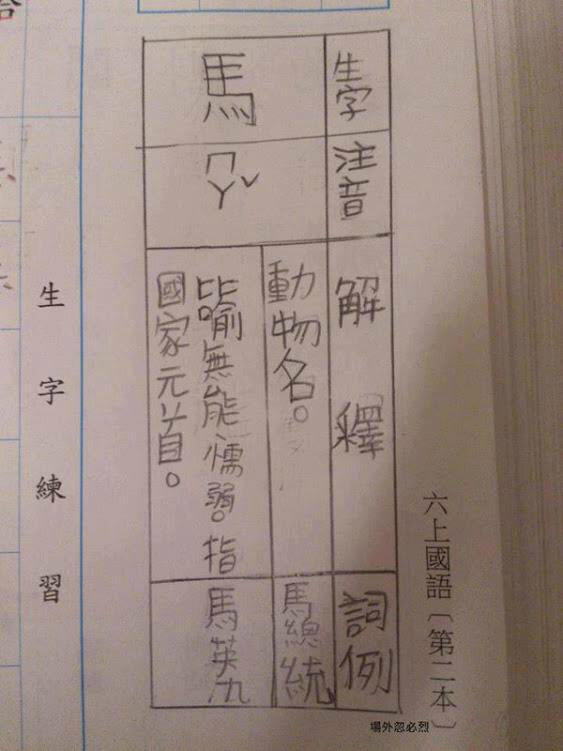 六上國語〔第二本〕
生字
注音
解釋
詞例
馬
ㄇㄚˇ
動物名。
馬總統
比喻無能、懦弱。指
國家元首。
馬英九
生字練習
場外忽必烈